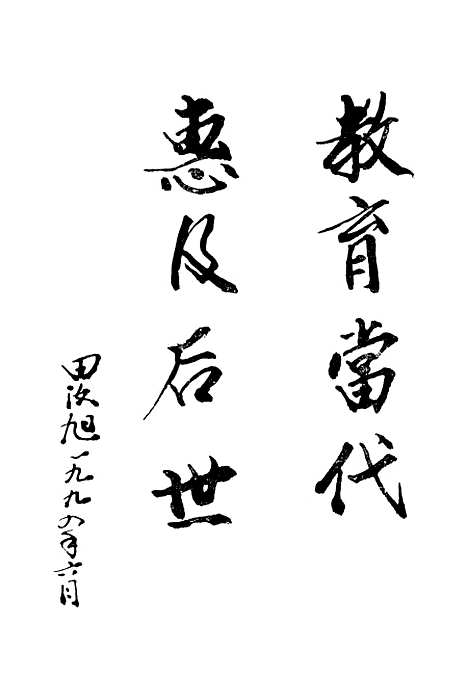 教育當代
惠及后世
田汝旭一九九四年六月